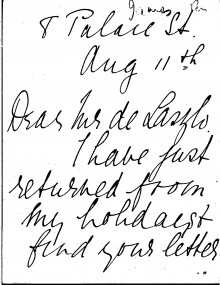 8 Palace St.
Aug 11th
Dear Mr de Laszlo.
I have just
returned from
my holiday &
find your letter